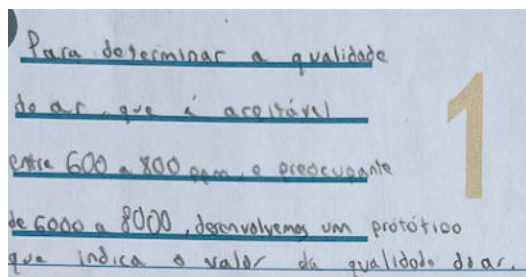 Para determinar a qualidade
do ar, que é aceitável
entre 600 a 800 ppm, e preocupante
de 6000 a 8000, desenvolvemos um protótipo
que indica o valor da qualidade do ar.
1